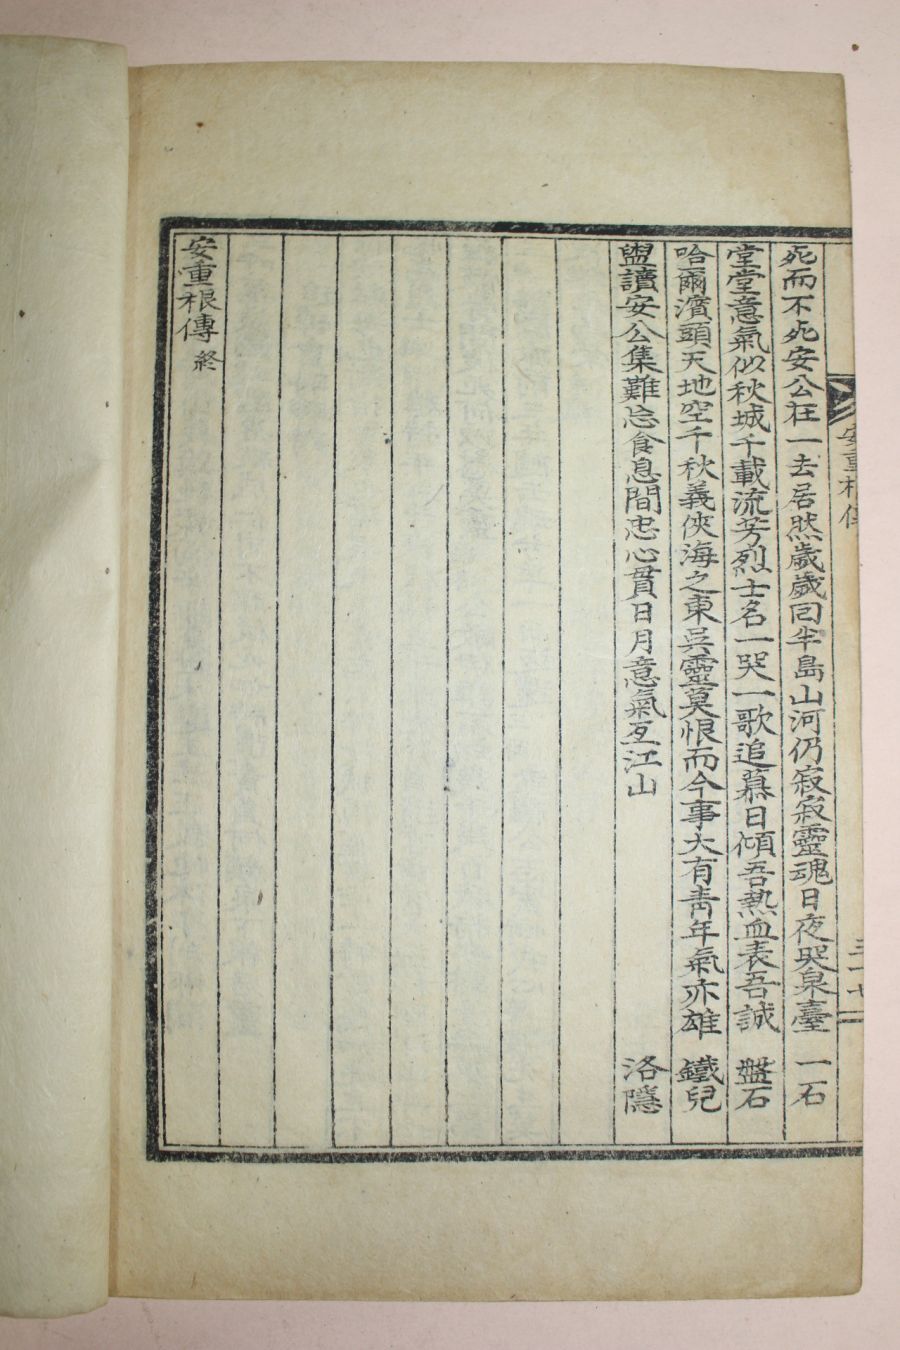 安重根傳
死而不死安公在一去居然歲歲回半島山河仍寂寂靈魂日夜哭泉臺 一石
堂堂意氣似秋城千載流芳烈士名一哭一歌追慕日傾吾熱血表吾誠 盤石
哈爾濱頭天地空千秋義俠海之東吳靈莫恨而今事大有靑年氣亦雄 鐵兒
盥讀安公集難忘食息間忠心貫日月意氣亙江山 洛隱
安重根傳 終